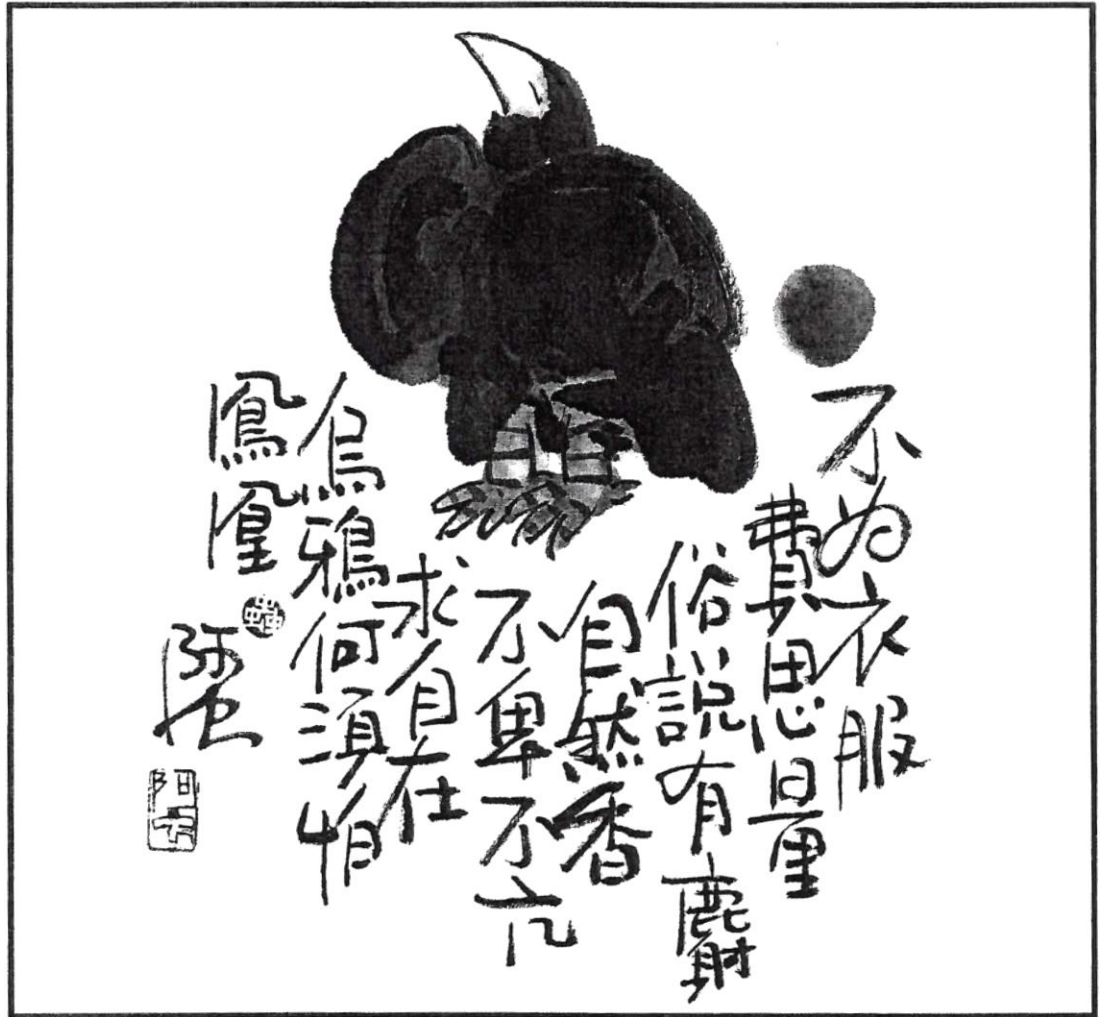 不为衣服
費思量
俗說有麝
自然香
不卑不亢
求自在
烏鴉何須怕
鳳凰
阿虫